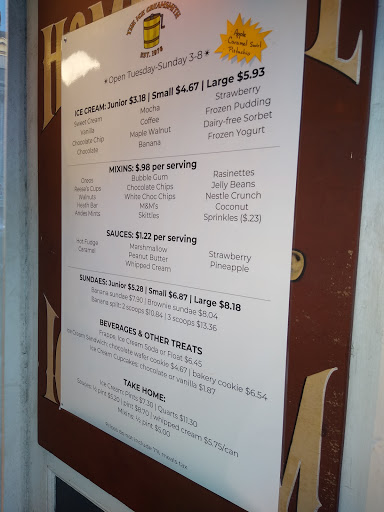 HOM
THE ICE CREAMSMITH
EST. 1976
Apple
Caramel Swirl
Pistachio
✶Open Tuesday-Sunday 3-8✶
ICE CREAM: Junior $3.18 | Small $4.67 | Large $5.93
Sweet Cream
Vanilla
Chocolate Chip
Chocolate
Mocha
Coffee
Maple Walnut
Banana
Strawberry
Frozen Pudding
Dairy-free Sorbet
Frozen Yogurt
MIXINS: $.98 per serving
Oreos
Reese's Cups
Walnuts
Heath Bar
Andes Mints
Bubble Gum
Chocolate Chips
White Choc Chips
M&M's
Skittles
Rasinettes
Jelly Beans
Nestle Crunch
Coconut
Sprinkles ($.23)
SAUCES: $1.22 per serving
Hot Fudge
Caramel
Marshmallow
Peanut Butter
Whipped Cream
Strawberry
Pineapple
SUNDAES: Junior $5.28 | Small $6.87 | Large $8.18
Banana sundae $7.90 | Brownie sundae $8.04
Banana split: 2 scoops $10.84 | 3 scoops $13.36
BEVERAGES & OTHER TREATS
Frappe, Ice Cream Soda or Float $6.45
Ice Cream Sandwich: chocolate wafer cookie $4.67 | bakery cookie $6.54
Ice Cream Cupcakes: chocolate or vanilla $1.87
TAKE HOME:
Ice Cream: Pints $7.30 | Quarts $11.30
Sauces: ½ pint $5.20 | pint $8.70 | whipped cream $5.75/can
Mixins: ½ pint $5.00
Prices do not include 7% meals tax